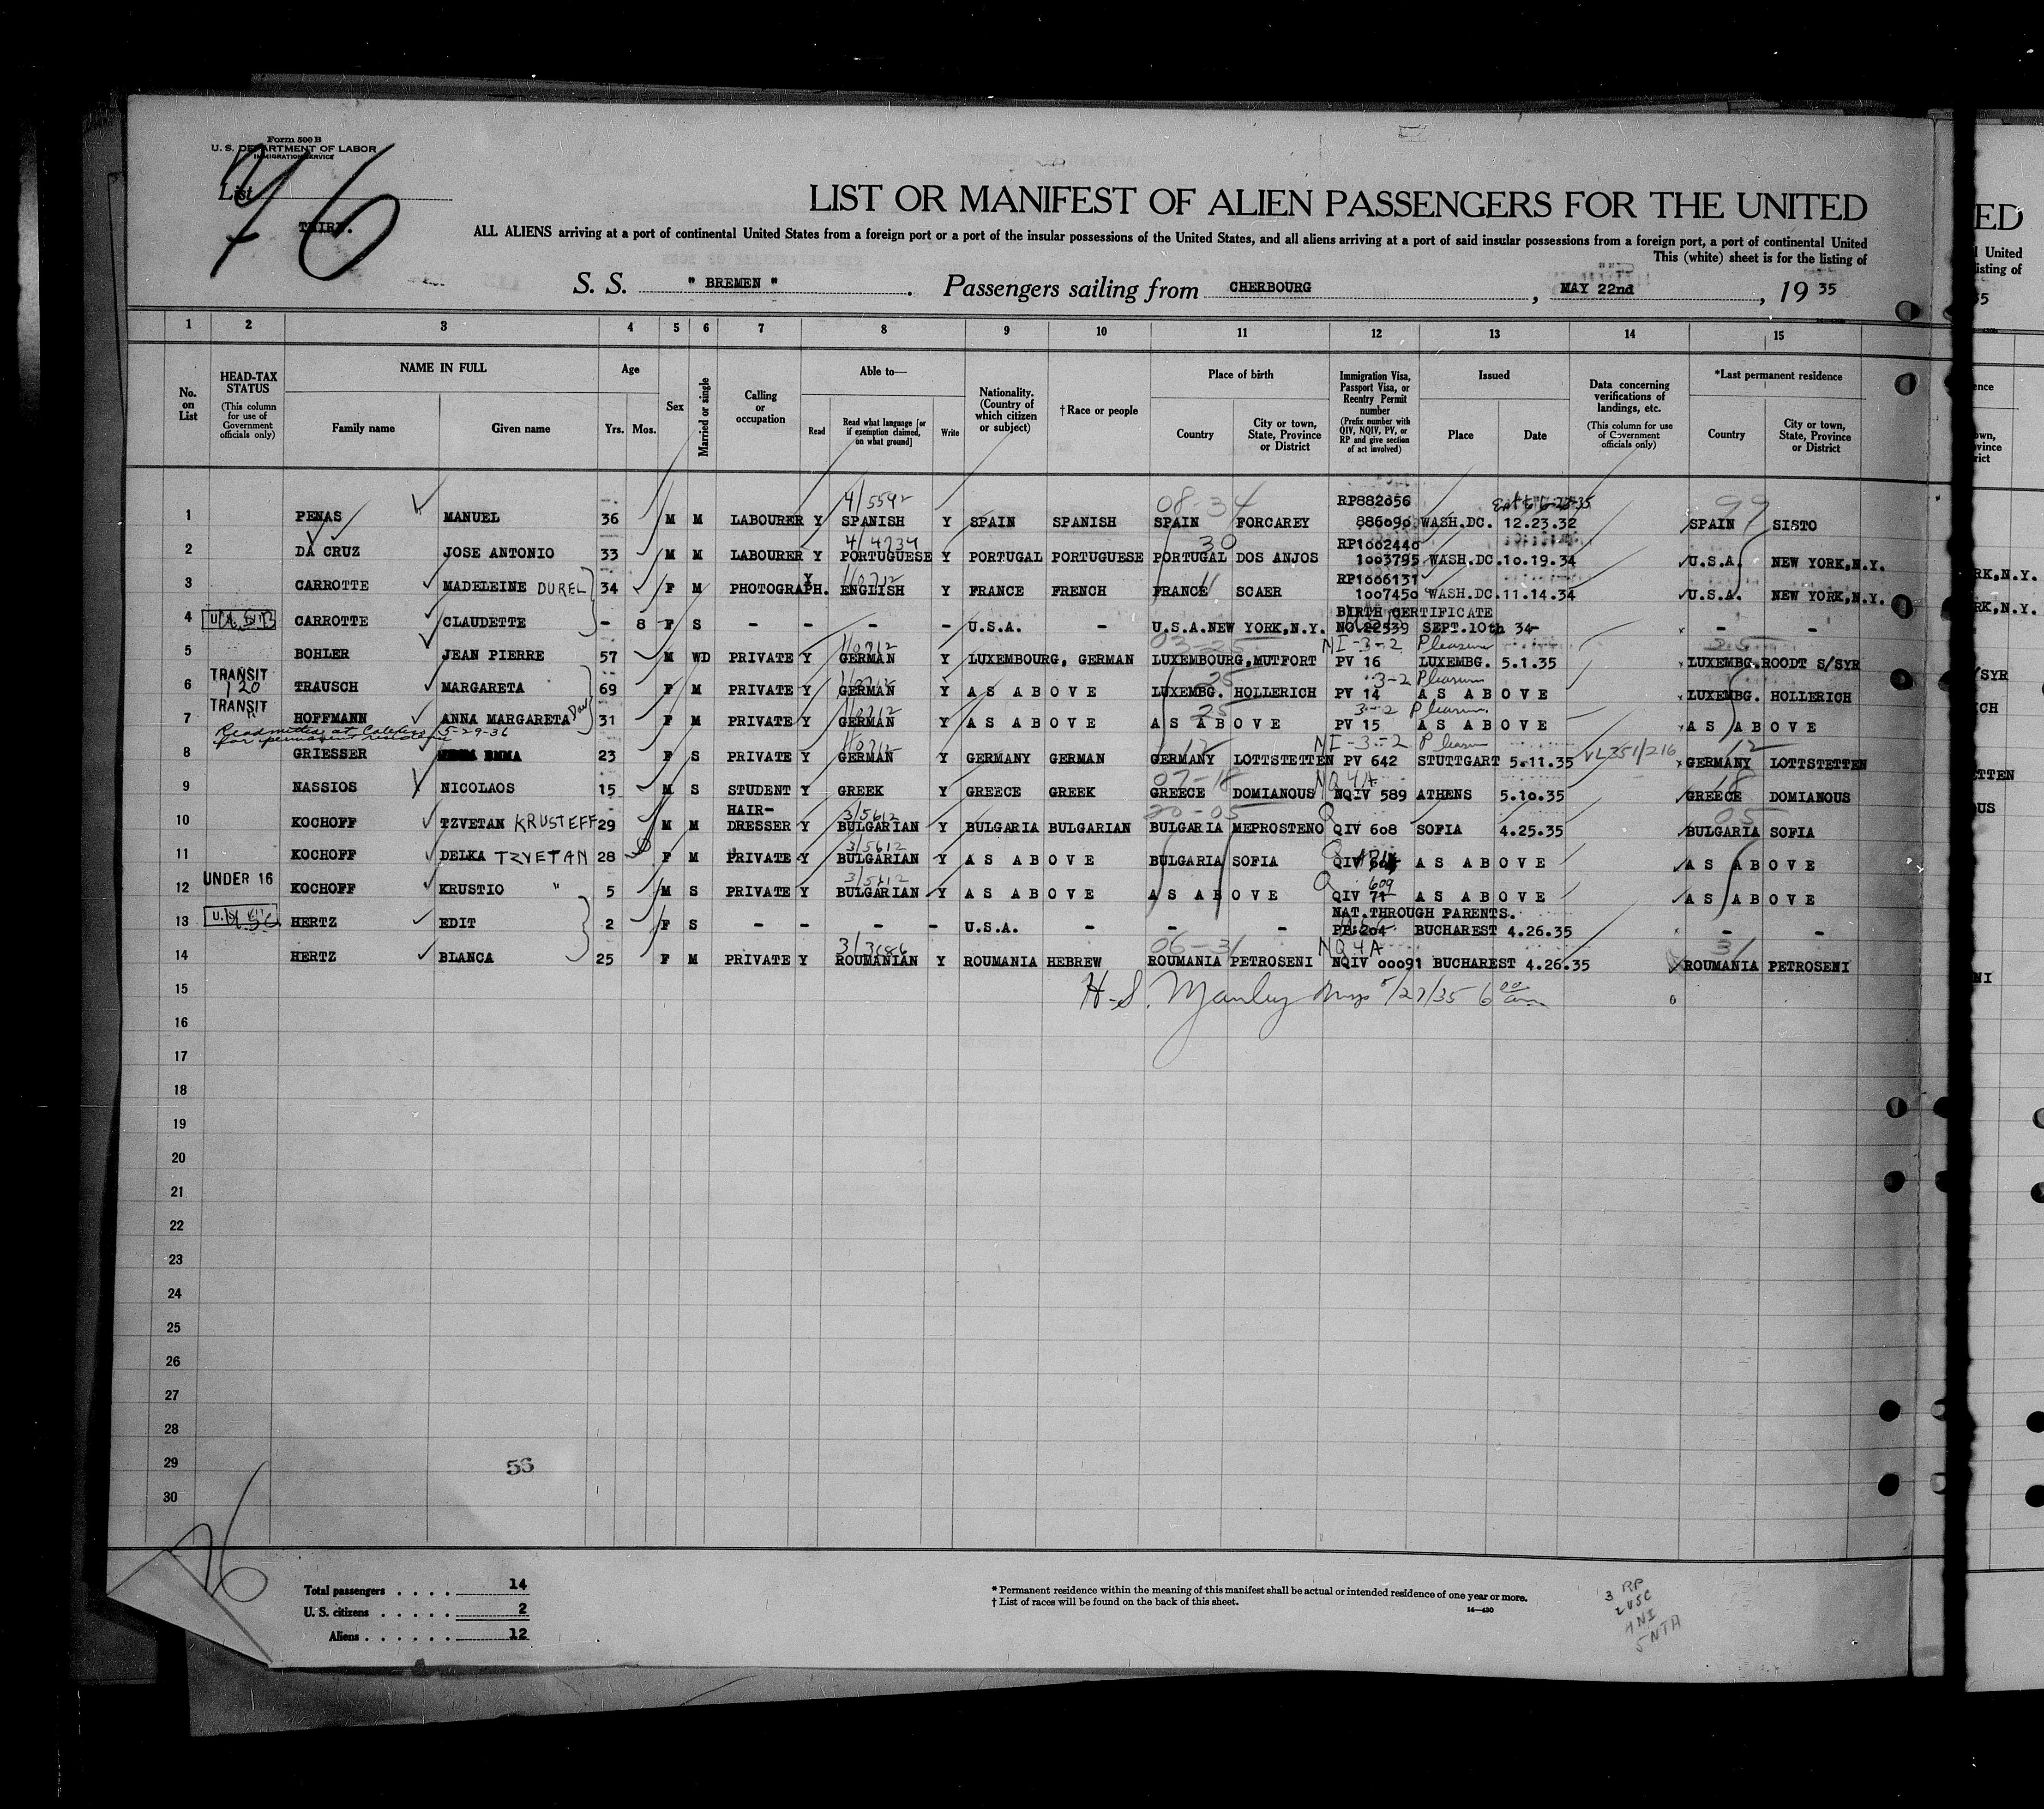 Form 500 B
U. S. DEPARTMENT OF LABOR
IMMIGRATION SERVICE
List
76
THIRD.
LIST OR MANIFEST OF ALIEN PASSENGERS FOR THE UNITED
ALL ALIENS arriving at a port of continental United States from a foreign port or a port of the insular possessions of the United States, and all aliens arriving at a port of said insular possessions from a foreign port, a port of continental United
This (white) sheet is for the listing of
S. S. " BREMEN ". Passengers sailing from CHERBOURG , MAY 22nd , 19 35
1 2 3 4 5 6 7 8 9 10 11 12 13 14 15
No. on List
HEAD-TAX STATUS (This column for use of Government officials only)
NAME IN FULL Family name Given name
Age Yrs. Mos.
Sex
Married or single
Calling or occupation
Able to— Read Read what language [or if exemption claimed, on what ground] Write
Nationality. (Country of which citizen or subject)
†Race or people
Place of birth Country City or town, State, Province or District
Immigration Visa, Passport Visa, or Reentry Permit number (Prefix number with QIV, NQIV, PV, or RP and give section of act involved)
Issued Place Date
Data concerning verifications of landings, etc. (This column for use of Government officials only)
*Last permanent residence Country City or town, State, Province or District
4/5592 08-34 RP882656 99
1 PENAS MANUEL 36 M M LABOURER Y SPANISH Y SPAIN SPANISH SPAIN FORCAREY 886090 WASH.DC. 12.23.32 SPAIN SISTO
4/4734 30 RP1002440
2 DA CRUZ JOSE ANTONIO 33 M M LABOURER Y PORTUGUESE Y PORTUGAL PORTUGUESE PORTUGAL DOS ANJOS 1003795 WASH.DC.10.19.34 U.S.A. NEW YORK,N.Y.
RP1006131
3 CARROTTE MADELEINE DUREL 34 F M PHOTOGRAPH. Y ENGLISH Y FRANCE FRENCH FRANCE SCAER 1007450 WASH.DC.11.14.34 U.S.A. NEW YORK,N.Y.
BIRTH CERTIFICATE
4 CARROTTE CLAUDETTE - 8 F S - - - - U.S.A. - U.S.A.NEW YORK,N.Y. NO.22539 SEPT.10th 34- - -
03-25 NI-3-2 Pleasure 25
5 BOHLER JEAN PIERRE 57 M WD PRIVATE Y GERMAN Y LUXEMBOURG, GERMAN LUXEMBOURG,MUTFORT PV 16 LUXEMBG. 5.1.35 LUXEMBG.ROODT S/SYR
TRANSIT 120 25 3-2 Pleasure
6 TRAUSCH MARGARETA 69 F M PRIVATE Y GERMAN Y AS ABOVE LUXEMBG. HOLLERICH PV 14 AS ABOVE LUXEMBG. HOLLERICH
TRANSIT " 25 3-2 Pleasure
7 HOFFMANN ANNA MARGARETA Dau 31 F M PRIVATE Y GERMAN Y AS ABOVE AS ABOVE PV 15 AS ABOVE AS ABOVE
Readmitted at Calexico 5-29-36
for permanent residence
12 NI-3-2 VL351/216 12
8 GRIESSER EMMA 23 F S PRIVATE Y GERMAN Y GERMANY GERMAN GERMANY LOTTSTETTEN PV 642 STUTTGART 5.11.35 GERMANY LOTTSTETTEN
07-18 NQ4A 18
9 NASSIOS NICOLAOS 15 M S STUDENT Y GREEK Y GREECE GREEK GREECE DOMIANOUS NQIV 589 ATHENS 5.10.35 GREECE DOMIANOUS
HAIR- 3/5612 20-05 Q 05
10 KOCHOFF TZVETAN KRUSTEFF 29 M M DRESSER Y BULGARIAN Y BULGARIA BULGARIAN BULGARIA MEPROSTENO QIV 608 SOFIA 4.25.35 BULGARIA SOFIA
3/5612 Q
11 KOCHOFF DELKA TZVETAN 28 F M PRIVATE Y BULGARIAN Y AS ABOVE BULGARIA SOFIA QIV AS ABOVE AS ABOVE
UNDER 16 3/5612 Q 609
12 KOCHOFF KRUSTIO " 5 M S PRIVATE Y BULGARIAN Y AS ABOVE AS ABOVE QIV 71 AS ABOVE AS ABOVE
NAT.THROUGH PARENTS.
13 HERTZ EDIT 2 F S - - - - U.S.A. - - - PP.204 BUCHAREST 4.26.35 - -
3/3686 06-31 NQ4A 31
14 HERTZ BLANCA 25 F M PRIVATE Y ROUMANIAN Y ROUMANIA HEBREW ROUMANIA PETROSENI NQIV 00091 BUCHAREST 4.26.35 ROUMANIA PETROSENI
15 H.S. Manley Insp 5/27/35 6 00 am
16
17
18
19
20
21
22
23
24
25
26
27
28
29 56
30
76
Total passengers . . . . 14
U. S. citizens . . . . . 2
Aliens . . . . . . 12
* Permanent residence within the meaning of this manifest shall be actual or intended residence of one year or more.
† List of races will be found on the back of this sheet.
14—430
3 RP
2 USC
4 NI
5 NTA
ED
United
isting of
35
RK,N.Y.
RK,N.Y.
/SYR
ICH
TTEN
OUS
NI